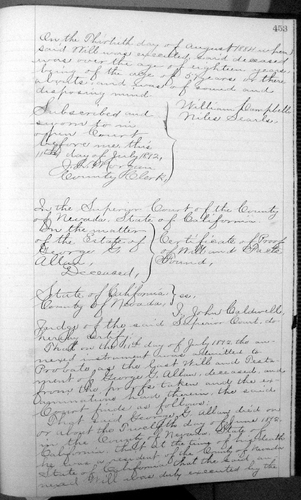 453
On the Thirtieth day of August 1880 when
said Will was executed said deceased
was over the age of eighteen years
being of the age of 57 years or there
abouts and was of sound and
disposing mind
William Campbell
Niles Searls.
Subscribed and
sworn to in
open Court
before me this
day of July 1892,
County Clerk,
In the Superior Court of the County
of Nevada, State of California
In the matter
of the Estate of
George G
Allan
Deceased,
Certificate of Proof
of Will and Facts
Found,
State of California
County of Nevada, ss.
I, John Caldwell,
Judge of the said Superior Court do
hereby certify,
That on the day of July 1892, the an-
nexed instrument was admitted to
Probate as the last Will and Testa-
ment of George G. Allan, deceased, and
from the proofs taken and the ex-
aminations had therein the said
Court finds as follows:
That said George G. Allan died on
or about the Twelfth day of June 1892,
in the County of Nevada State of
California that at the time of his death
he was a resident of the County of Nevada
State of California that the said an-
nexed Will was duly executed by the